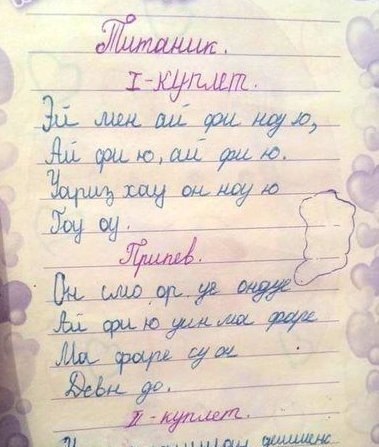 Титаник.
I-куплет.
Эй мен ай фи ноу ю,
Ай фи ю, ай фи ю.
Уариз хау он ноу ю
Гоу оу.
Припев.
Он смо ор уе ондуе
Ай фи ю уин ма фаре
Ма фаре су он
Девн до.
II-куплет.